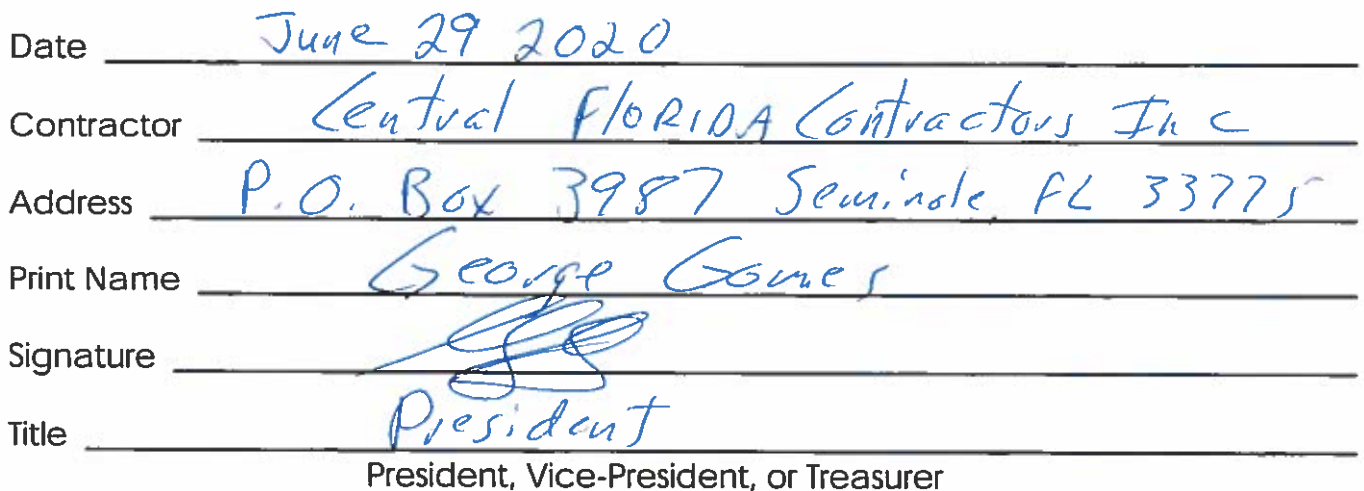 Date June 29 2020
Contractor Central FLORIDA Contractors Inc
Address P.O. Box 3987 Seminole, FL 33775
Print Name George Gomes
Signature
Title President
President, Vice-President, or Treasurer